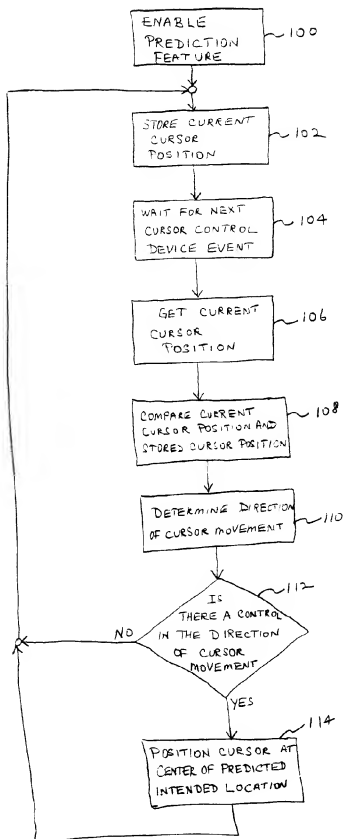 ENABLE
PREDICTION
FEATURE
100
STORE CURRENT
CURSOR
POSITION
102
WAIT FOR NEXT
CURSOR CONTROL
DEVICE EVENT
104
GET CURRENT
CURSOR
POSITION
106
COMPARE CURRENT
CURSOR POSITION AND
STORED CURSOR POSITION
108
DETERMINE DIRECTION
OF CURSOR MOVEMENT
110
112
IS
THERE A CONTROL
IN THE DIRECTION
OF CURSOR
MOVEMENT
NO
YES
114
POSITION CURSOR AT
CENTER OF PREDICTED
INTENDED LOCATION